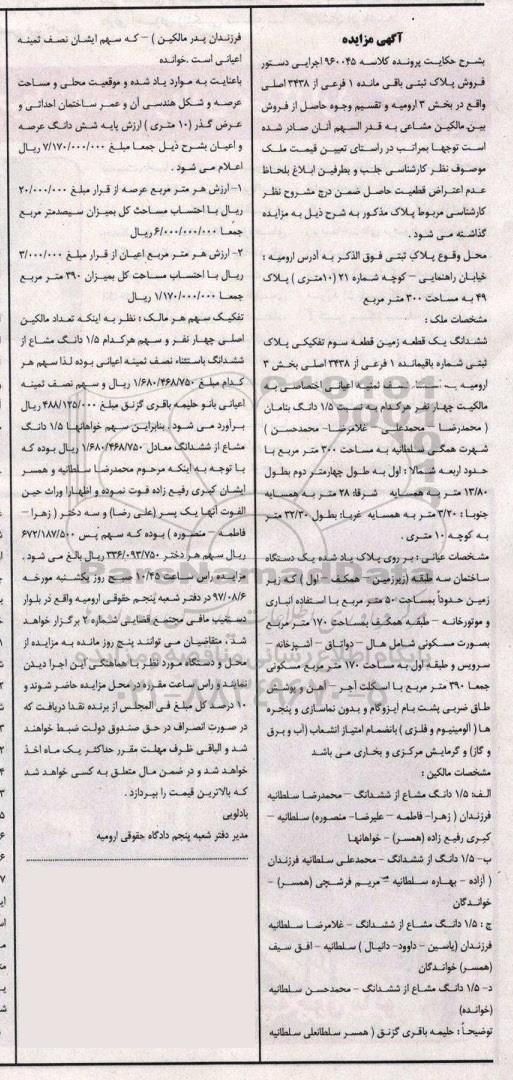 آگهی مزایده
بشرح حکایت پرونده کلاسه ۹۶۰۰۴۵ اجرایی دستور
فروش پلاک ثبتی باقی مانده ۱ فرعی از ۳۴۳۸ اصلی
واقع در بخش ۳ ارومیه و تقسیم وجوه حاصل از فروش
بین مالکین مشاعی به قدر السهم آنان صادر شده
است توجها بمراتب در راستای تعیین قیمت ملک
موصوف نظر کارشناسی جلب و بطرفین ابلاغ بلحاظ
عدم اعتراض قطعیت حاصل ضمن درج مشروح نظر
کارشناسی مربوط پلاک مذکور به شرح ذیل به مزایده
گذاشته می شود .
محل وقوع پلاک ثبتی فوق الذکر به آدرس ارومیه :
خیابان راهنمایی – کوچه شماره ۲۱ (۱۰متری ) پلاک
۴۹ به مساحت ۳۰۰ متر مربع
مشخصات ملک :
ششدانگ یک قطعه زمین قطعه سوم تفکیکی پلاک
ثبتی شماره باقیمانده ۱ فرعی از ۳۴۳۸ اصلی بخش ۳
ارومیه به نصف ثمنیه اعیانی اختصاصی
مالکیت چهار نفر هر کدام به نسبت ۱/۵ دانگ بنامان
( محمدرضا – محمدعلی – غلامرضا– محمدحسن )
شهرت همگی سلطانیه به مساحت ۳۰۰ متر مربع با
حدود اربعه شمالا : اول به طول چهارمتر دوم بطول
۱۳/۸۰ متر به همسایه شرقا: ۲۸ متر به همسایه
جنوبا : ۳/۲۰ متر به همسایه غربا: بطول ۳۲/۳۰ متر
به کوچه ۱۰ متری .
مشخصات عیانی : بر روی پلاک یاد شده یک دستگاه
ساختمان سه طبقه (زیرزمین– همکف – اول ) که زیر
زمین حدوداً بمساحت ۵۰ متر مربع با استفاده انباری
و موتورخانه – طبقه همکف بمساحت ۱۷۰ متر مربع
بصورت مسکونی شامل هال – دواتاق – آشپزخانه –
سرویس و طبقه اول به مساحت ۱۷۰ متر مربع سکونی
جمعا ۳۹۰ متر مربع با اسکلت آجر – آهن و پوشش
طاق ضربی پشت بام ایزوگام و بدون نماسازی و پنجره
ها ( آلومینیوم و فلزی ) بانضمام امتیاز انشعاب (آب و برق
و گاز) و گرمایش مرکزی و بخاری می باشد
مشخصات مالکین :
الف: ۱/۵ دانگ مشاع از ششدانگ – محمدرضا سلطانیه
فرزندان ( زهرا– فاطمه – علیرضا– منصوره) سلطانیه –
کبری رفیع زاده (همسر) – خواهانها
ب– ۱/۵ دانگ از ششدانگ – محمدعلی سلطانیه فرزندان
( آزاده – بهاره سلطانیه – مریم فرشچی (همسر) –
خواندگان
ج : ۱/۵ دانگ مشاع از ششدانگ – غلامرضا سلطانیه
فرزندان (یاسین – داوود– دانیال ) سلطانیه – افق سیف
(همسر) خواندگان
د– ۱/۵ دانگ مشاع از ششدانگ – محمدحسن سلطانیه
(خوانده)
توضیحاً : حلیمه باقری گزنق ( همسر سلطانعلی سلطانیه
فرزندان پدر مالکین ) – که سهم ایشان نصف ثمینه
اعیانی است .خوانده
باعنایت به موارد یاد شده و موقعیت محلی و مساحت
عرصه و شکل هندسی آن و عمر ساختمان احداثی و
عرض گذر (۱۰ متری ) ارزش پایه شش دانگ عرصه
و اعیان بشرح ذیل جمعا مبلغ ۷/۱۷۰/۰۰۰/۰۰۰ ریال
اعلام می شود .
۱– ارزش هر متر مربع عرصه از قرار مبلغ ۲۰/۰۰۰/۰۰۰
ریال با احتساب مساحت کل بمیزان سیصدمتر مربع
جمعا ۶/۰۰۰/۰۰۰/۰۰۰ ریال
۲– ارزش هر متر مربع اعیان از قرار مبلغ ۳/۰۰۰/۰۰۰
ریال با احتساب مساحت کل بمیزان ۳۹۰ متر مربع
جمعا ۱/۱۷۰/۰۰۰/۰۰۰ ریال
تفکیک سهم هر مالک : نظر به اینکه تعداد مالکین
اصلی چهار نفر و سهم هرکدام ۱/۵ دانگ مشاع از
ششدانگ باستثناء نصف ثمینه اعیانی بوده لذا سهم هر
کدام مبلغ ۱/۶۸۰/۴۶۸/۷۵۰ ریال و سهم نصف ثمینه
اعیانی بانو حلیمه باقری گزنق مبلغ ۴۸۸/۱۲۵/۰۰۰ ریال
برآورد می شود . بنابراین سهم خواهانها ۱/۵ دانگ
مشاع از ششدانگ معادل ۱/۶۸۰/۴۶۸/۷۵۰ ریال بوده که
با توجه به اینکه مرحوم محمدرضا سلطانیه و همسر
ایشان کبری رفیع زاده فوت نموده و اظهارا وراث حین
الفوت آنها یک پسر (علی رضا) و سه دختر ( زهرا –
فاطمه – منصوره ) بوده که سهم پس ۶۷۲/۱۸۷/۵۰۰
ریال سهم هر دختر ۳۳۶/۰۹۳/۷۵۰ ریال بالغ می شود .
مزایده راس ساعت ۱۰/۴۵ صبح روز یکشنبه مورخه
۹۷/۰۸/۶ در دفتر شعبه پنجم حقوقی ارومیه واقع در بلوار
دستغیب مافی مجتمع قضایی شماره ۲ برگزار خواهد
شد . متقاضیان می توانند پنج روز مانده به مزایده از
محل و دستگاه مورد نظر با هماهنگی این اجرا دیدن
نمایند و راس ساعت مقرره در محل مزایده حاضر شوند و
۱۰ درصد کل مبلغ فی المجلس از برنده نقدا دریافت که
در صورت انصراف در حق صندوق دولت ضبط خواهند
شد و الباقی ظرف مهلت مقرر حداکثر یک ماه اخذ
خواهد شد و در ضمن مال متعلق به کسی خواهد شد
که بالاترین قیمت را بپردازد .
بادلویی
مدیر دفتر شعبه پنجم دادگاه حقوقی ارومیه
ParsNamadData